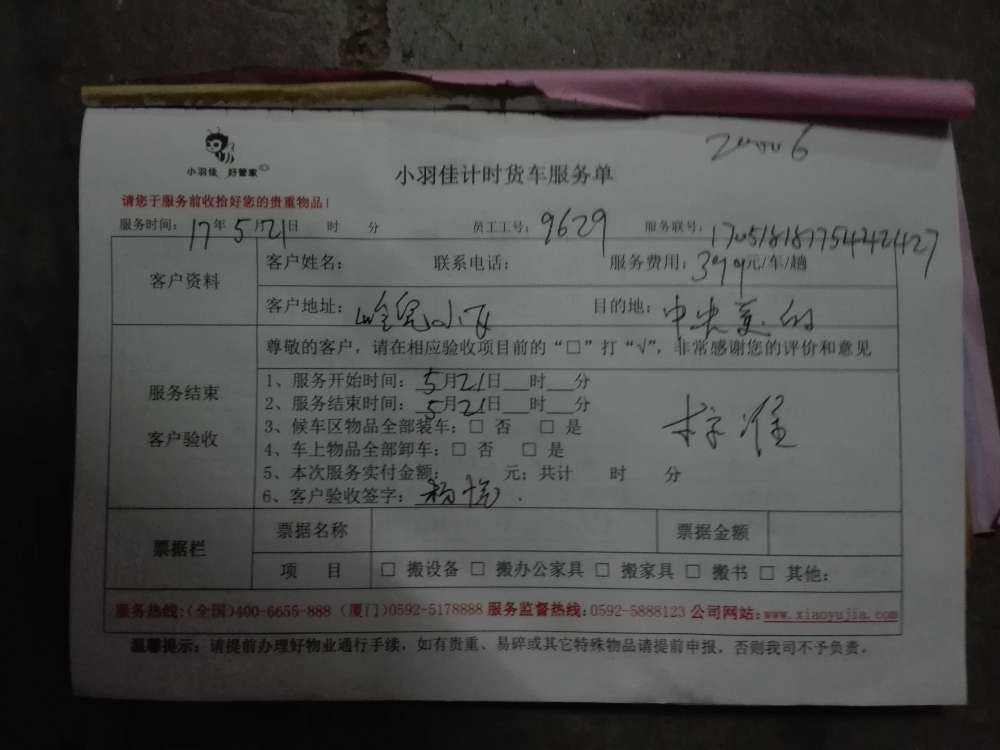 小羽佳 好管家
小羽佳计时货车服务单
请您于服务前收拾好您的贵重物品！
服务时间：17年5月21日 时 分 员工工号：9629 服务联号：
客户资料
客户姓名： 联系电话： 服务费用：399元/车/趟
客户地址： 目的地：中央美的
服务结束
客户验收
尊敬的客户，请在相应验收项目前的“□”打“√”，非常感谢您的评价和意见
1、服务开始时间：5月21日___时___分
2、服务结束时间：5月21日___时___分
3、候车区物品全部装车：□ 否 □ 是
4、车上物品全部卸车：□ 否 □ 是
5、本次服务实付金额： 元；共计 时 分
6、客户验收签字：
票据栏
票据名称 票据金额
项 目 □ 搬设备 □ 搬办公家具 □ 搬家具 □ 搬书 □ 其他：
服务热线：（全国）400-6655-888（厦门）0592-5178888 服务监督热线：0592-5888123 公司网站：www.xiaoyujia.com
温馨提示：请提前办理好物业通行手续，如有贵重、易碎或其它特殊物品请提前申报，否则我司不予负责。